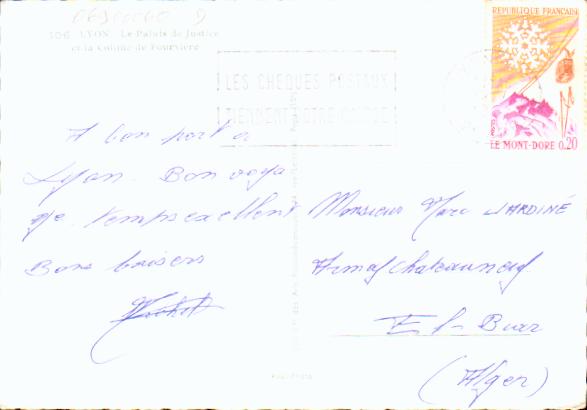 06900060 9
106 LYON Le Palais de Justice
et la Colline de Fourvière
LES CHEQUES POSTAUX
TIENNENT VOTRE CAISSE
REPUBLIQUE FRANÇAISE
LE MONT-DORE 0,20
A bon port a
Lyon. Bon voya
ge. Temps excellent
Bons baisers
Monsieur Marc JARDINÉ
Chateauneuf
El-Biar
(Alger)